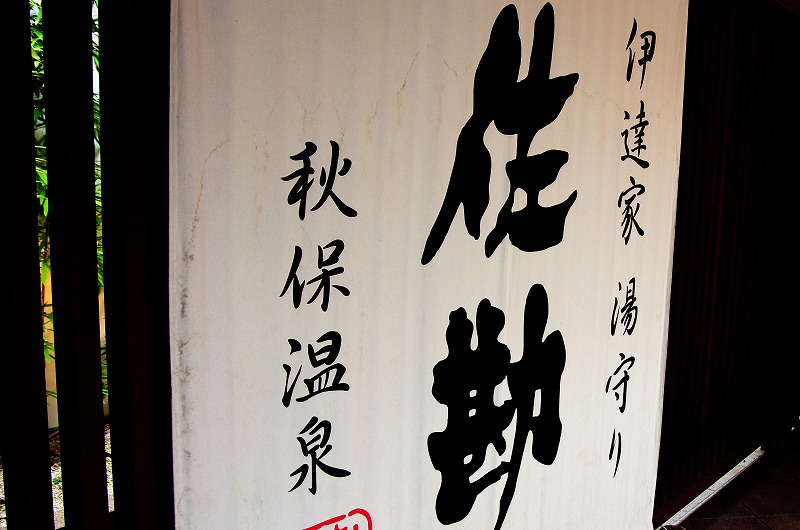 伊達家 湯守り
佐勘
秋保温泉